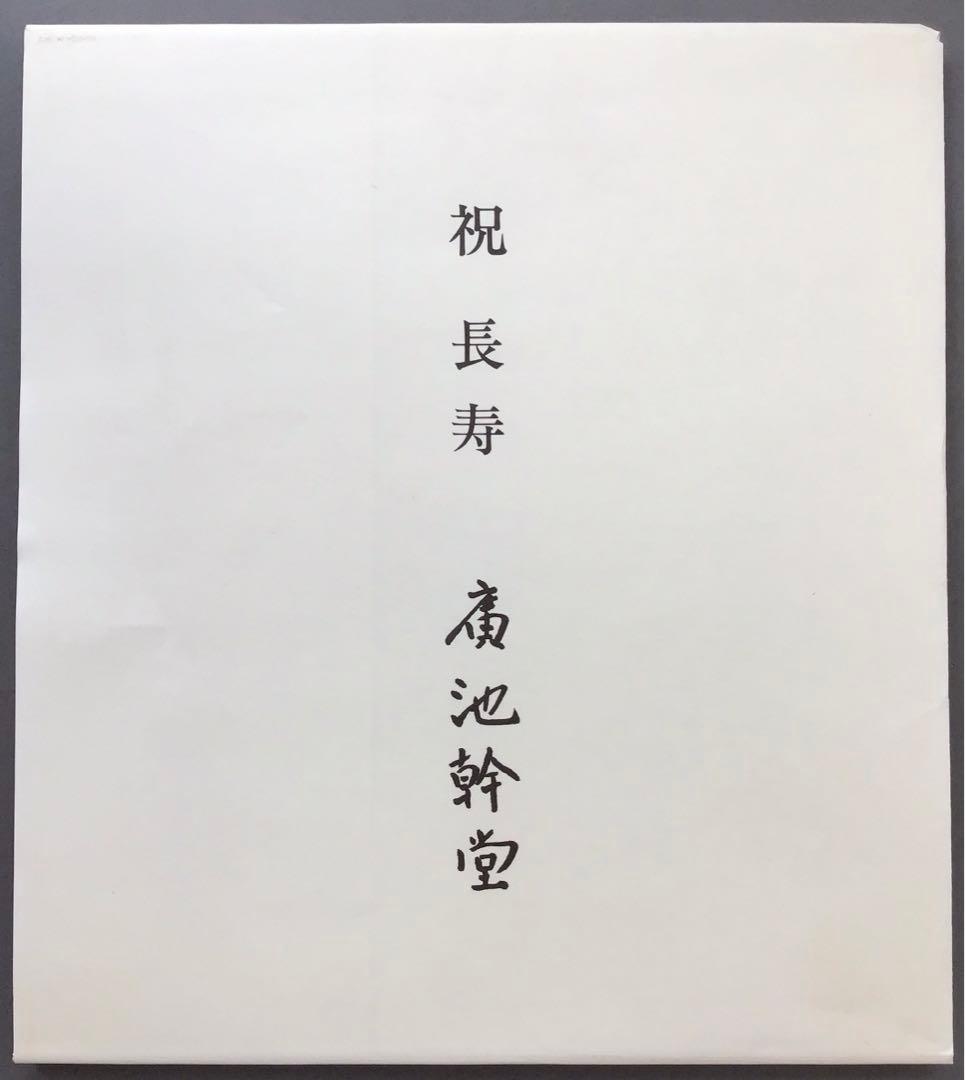 祝 長寿
廣池幹堂